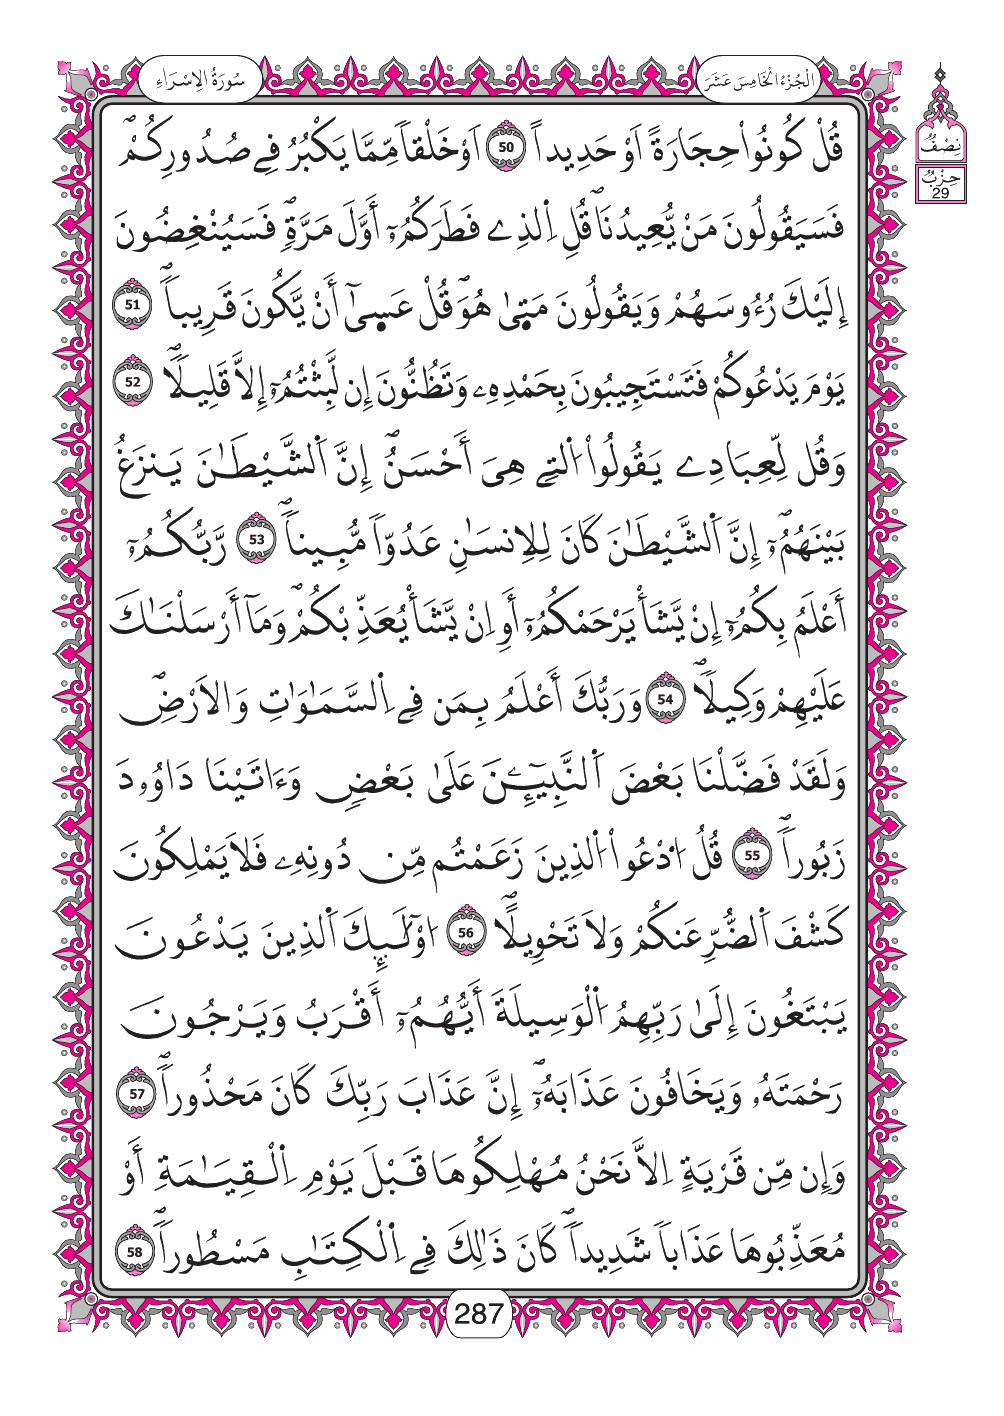 سُورَةُ الإِسْرَاءِ
الْجُزْءُ الْخَامِسَ عَشَرَ
نِصْفُ
حِزْبٌ
29
قُلْ كُونُواْ حِجَارَةً اَوْ حَدِيداً 50 اَوْ خَلْقاً مِّمَّا يَكْبُرُ فِے صُدُورِكُمْۖ
فَسَيَقُولُونَ مَنْ يُّعِيدُنَاۖ قُلِ اِ۬لذِے فَطَرَكُمُۥٓ أَوَّلَ مَرَّةٖۖ فَسَيُنْغِضُونَ
إِلَيْكَ رُءُوسَهُمْ وَيَقُولُونَ مَت۪يٰ هُوَۖ قُلْ عَس۪يٰٓ أَنْ يَّكُونَ قَرِيباٗۖ 51
يَوْمَ يَدْعُوكُمْ فَتَسْتَجِيبُونَ بِحَمْدِهِۦ وَتَظُنُّونَ إِن لَّبِثْتُمُۥٓ إِلاَّ قَلِيلاٗۖ 52
وَقُل لِّعِبَادِے يَقُولُواْ اُ۬لتِے هِيَ أَحْسَنُۖ إِنَّ اَ۬لشَّيْطَٰنَ يَنزَغُ
بَيْنَهُمُۥٓۖ إِنَّ اَ۬لشَّيْطَٰنَ كَانَ لِلِانسَٰنِ عَدُوّاٗ مُّبِيناٗۖ 53 رَّبُّكُمُۥٓ
أَعْلَمُ بِكُمُۥٓ إِنْ يَّشَأْ يَرْحَمْكُمُۥٓ أَوِ اِنْ يَّشَأْ يُعَذِّبْكُمْۖ وَمَآ أَرْسَلْنَٰكَ
عَلَيْهِمْ وَكِيلاٗۖ 54 وَرَبُّكَ أَعْلَمُ بِمَن فِے اِ۬لسَّمَٰوَٰتِ وَالاَرْضِۖ
وَلَقَدْ فَضَّلْنَا بَعْضَ اَ۬لنَّبِيٓـِٕۧنَ عَلَىٰ بَعْضٖ وَءَاتَيْنَا دَاوُۥدَ
زَبُوراٗۖ 55 قُلُ اُ۟دْعُواْ اُ۬لذِينَ زَعَمْتُم مِّن دُونِهِۦ فَلَا يَمْلِكُونَ
كَشْفَ اَ۬لضُّرِّ عَنكُمْ وَلَا تَحْوِيلاًۖ 56 ا۟وْلَٰٓئِكَ اَ۬لذِينَ يَدْعُونَ
يَبْتَغُونَ إِلَىٰ رَبِّهِمُ اُ۬لْوَسِيلَةَ أَيُّهُمُۥٓ أَقْرَبُ وَيَرْجُونَ
رَحْمَتَهُۥ وَيَخَافُونَ عَذَابَهُۥٓۖ إِنَّ عَذَابَ رَبِّكَ كَانَ مَحْذُوراٗۖ 57
وَإِن مِّن قَرْيَةٍ اِلاَّ نَحْنُ مُهْلِكُوهَا قَبْلَ يَوْمِ اِ۬لْقِيَٰمَةِ أَوْ
مُعَذِّبُوهَا عَذَاباٗ شَدِيداٗۖ كَانَ ذَٰلِكَ فِے اِ۬لْكِتَٰبِ مَسْطُوراٗۖ 58
287